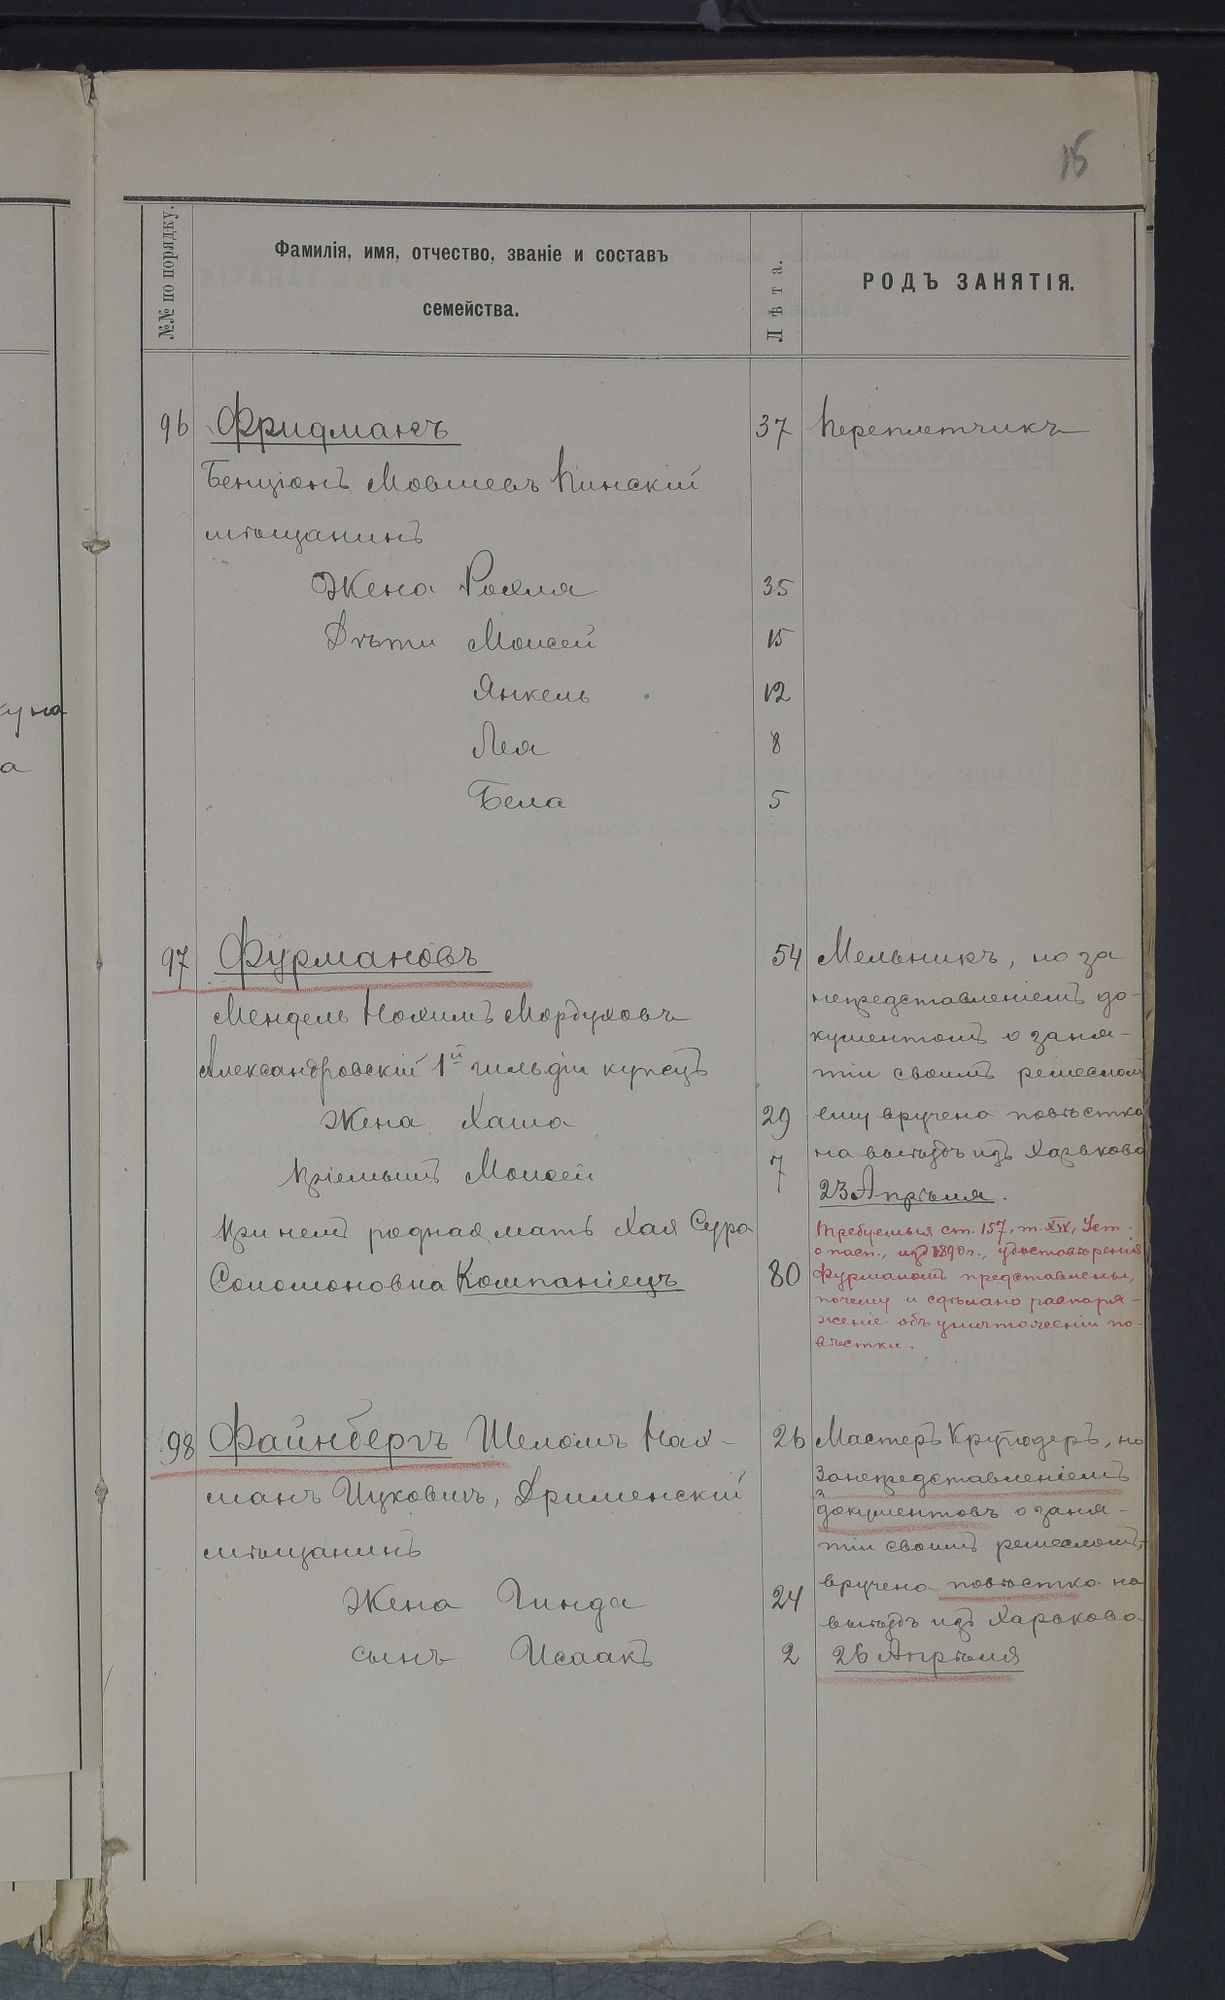 15
№№ по порядку.
Фамилія, имя, отчество, званіе и составъ
семейства.
Лѣта.
РОДЪ ЗАНЯТІЯ.
96 Фридманъ 37 Переплетчикъ
Бенціонъ Мовшевъ Пинскій
мѣщанинъ
Жена Рохля 35
Дѣти Моисей 15
Янкель 12
Лея 8
Бела 5
97 Фурмановъ 54 Мельникъ, но за
непредставленіемъ до-
Мендель Нохимъ Мордуховъ
кументовъ о заня-
Александровскій 1й гильдіи купецъ
тіи своимъ ремесломъ
Жена Хаша 29 ему вручена повѣстка
на выѣздъ изъ Харькова
Пріемышъ Моисей 7
23 Апрѣля.
При немъ родная мать Хая Сура
Соломоновна Компаніецъ 80
Требуемыя ст. 157, т. XIV, Уст.
о пасп., изд 1890 г., удостовѣренія
Фурманомъ представлены,
почему и сдѣлано распоря-
женіе объ уничтоженіи по-
вѣстки.
98 Файнбергъ Шеломъ Нах- 26 Мастеръ Круподеръ, но
за непредставленіемъ
манъ Ицковичъ,
документовъ о заня-
мѣщанинъ
тіи своимъ ремесломъ,
вручена повѣстка на
Жена Гинда 24
выѣздъ изъ Харькова
сынъ Исаакъ 2 26 Апрѣля
ку на
а